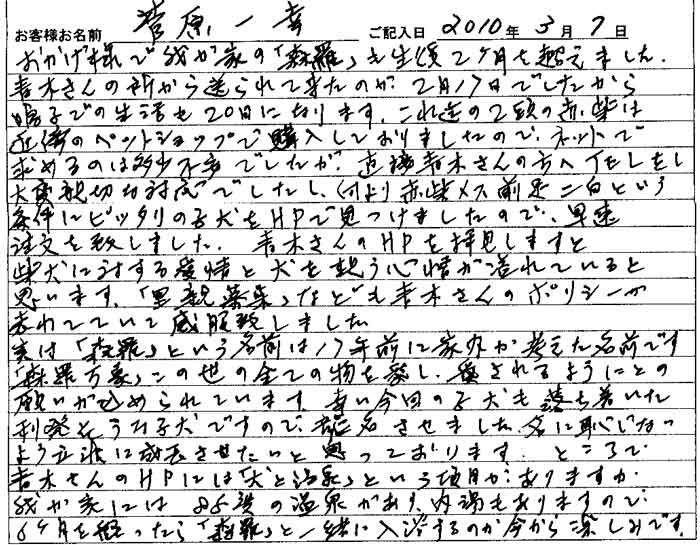 お客様お名前 菅原一幸 ご記入日 2010年3月7日
おかげ様で我が家の「森羅」も生後2ヶ月を超えました.
青木さんの所から送られて来たのが、2月17日でしたから
鳴子での生活も20日になります.これ迄の2頭の赤柴は
近街のペットショップで購入しておりましたので、ネットで
求めるのは多少不安でしたが、直接青木さんの方へTELをし
大変親切な対応でしたし、何より赤柴メス前足二白という
条件にピッタリの子犬をHPで見つけましたので、早速
注文を致しました. 青木さんのHPを拝見しますと
柴犬に対する愛情と犬を想う心情が溢れていると
思います.「里親募集」なども青木さんのポリシーが
表れていて感服致しました
実は「森羅」という名前は17年前に家内が考えた名前です
「森羅万象」この世の全ての物を愛し、愛されるようにとの
願いが込められています 幸い今回の子犬も落ち着いた
利発そうな子犬ですので、命名させました.名に恥じない
よう立派に成長させたいと思っております. ところで
青木さんのHPには「犬と温泉」という項目がありますが
我が家には 85度の温泉があり、内湯もありますので
6ヶ月を経ったら「森羅」と一緒に入浴するのが今から楽しみです.